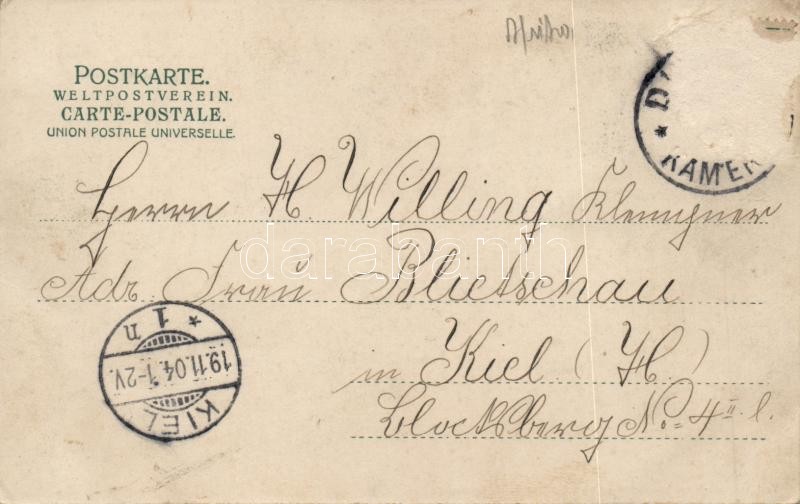 Afrika
POSTKARTE.
WELTPOSTVEREIN.
CARTE-POSTALE.
UNION POSTALE UNIVERSELLE.
KAMER
Herrn H. Willing Klempner
Adr Frau Blietschau
in Kiel (H)
Blocksberg No 4 II l.
KIEL
19.11.04. 1-2V.
* 1 n
darabanth